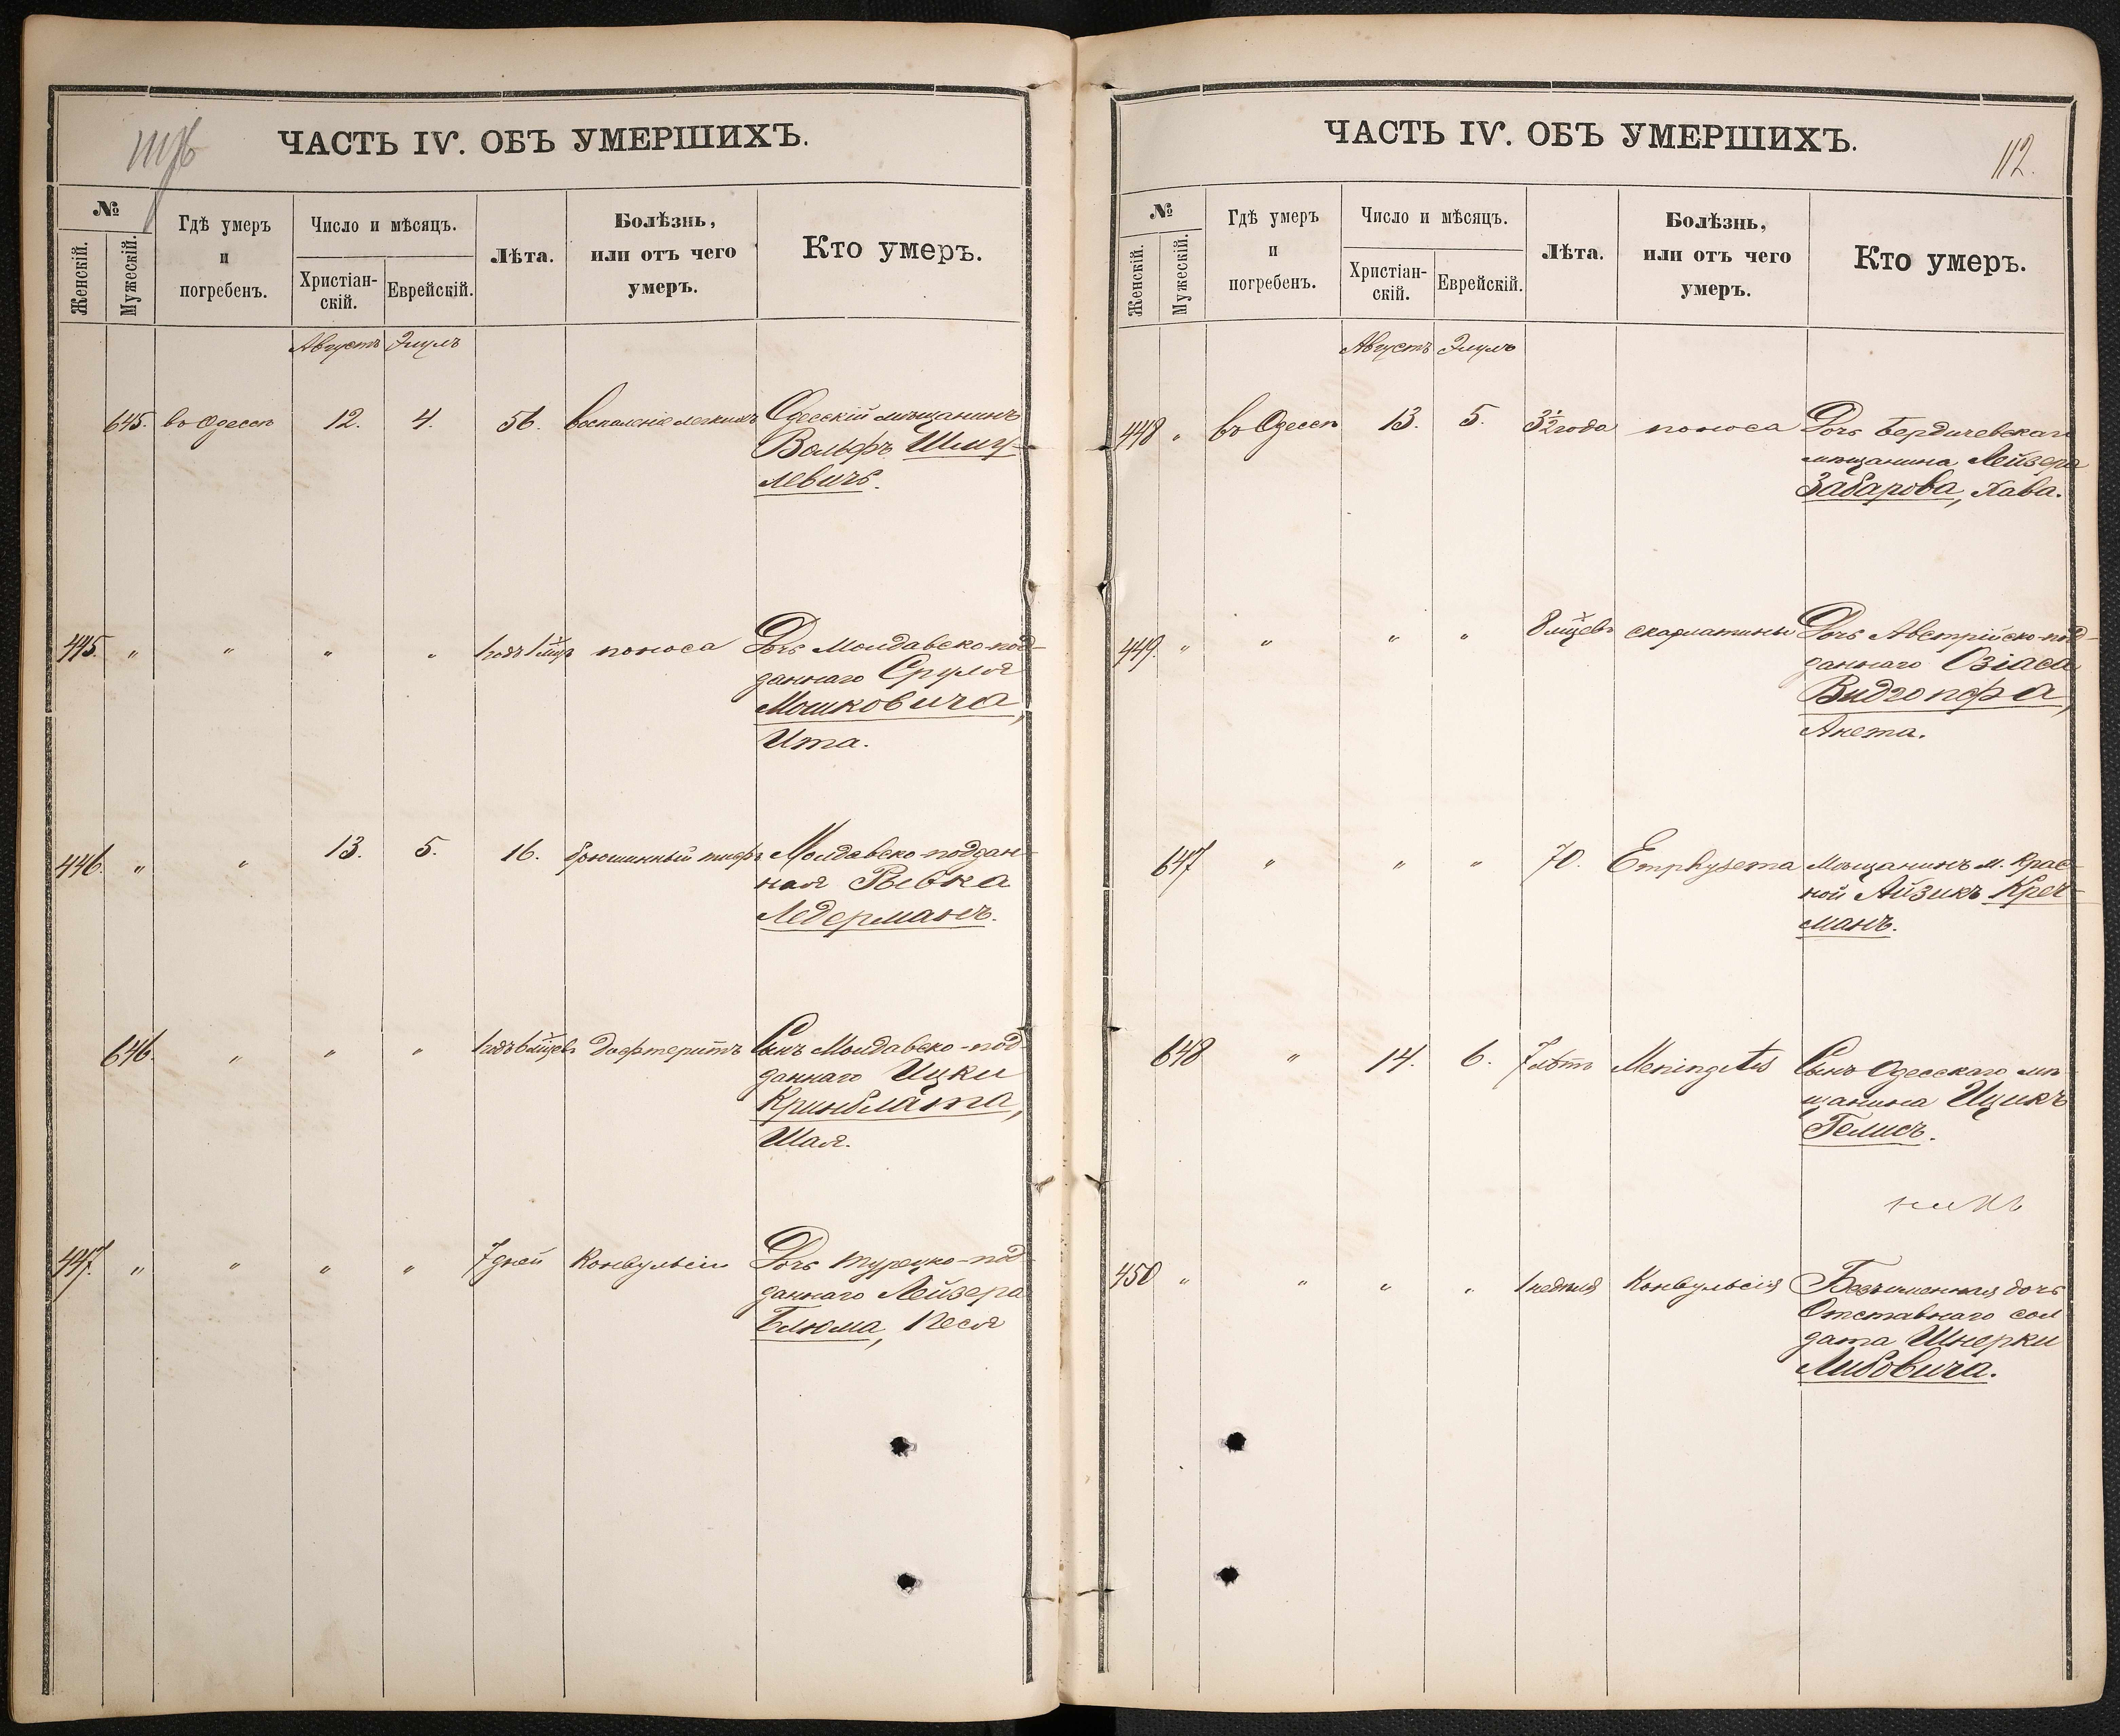 ЧАСТЬ IV. ОБЪ УМЕРШИХЪ.
№
Женскій.
Мужескій.
Гдѣ умеръ
и
погребенъ.
Число и мѣсяцъ.
Христіан-
скій.
Еврейскій.
Лѣта.
Болѣзнь,
или отъ чего
умеръ.
Кто умеръ.
Августъ Элулъ
645. въ Одессѣ 12. 4. 56. воспаленіе легкихъ Одесскій мѣщанинъ
Вольфъ Шму-
левичъ.
445. " " " " 1 годъ 1 мцъ поноса Дочь Молдавско-под-
даннаго Сруля
Мошковича,
Ита.
446. " " 13. 5. 16. брюшинный тифъ Молдавско-поддан-
ная Рывка
Ледерманъ.
646. " " " 1 годъ 6 мцевъ дифтеритъ Сынъ Молдавско-под-
даннаго Ицки
Кринблата,
Шая.
447. " " " " 7 дней Конвульсіи Дочь Турецко-под-
даннаго Лейзера
Блюма, Песя
ЧАСТЬ IV. ОБЪ УМЕРШИХЪ.
112.
№
Женскій.
Мужескій.
Гдѣ умеръ
и
погребенъ.
Число и мѣсяцъ.
Христіан-
скій.
Еврейскій.
Лѣта.
Болѣзнь,
или отъ чего
умеръ.
Кто умеръ.
Августъ Элулъ
448 " въ Одессѣ 13. 5. 3½ года поноса Дочь Бердичевскаго
мѣщанина Лейзера
Забарова, Хава.
449. " " " " 8 мцевъ скарлатины Дочь Австрійско-под-
даннаго Озіаса
Видгопфа,
Анета.
647 " " " 70. Emphysema Мѣщанинъ м. Крас-
ной Айзикъ Креч-
манъ.
648 " 14. 6. 7 лѣтъ Meningitis Сынъ Одесскаго мѣ-
щанина Ицикъ
Гелисъ.
450 " " " " 1 недѣля Конвульсія Безъименная дочь
Отставнаго сол-
дата Шнерки
Либовича.